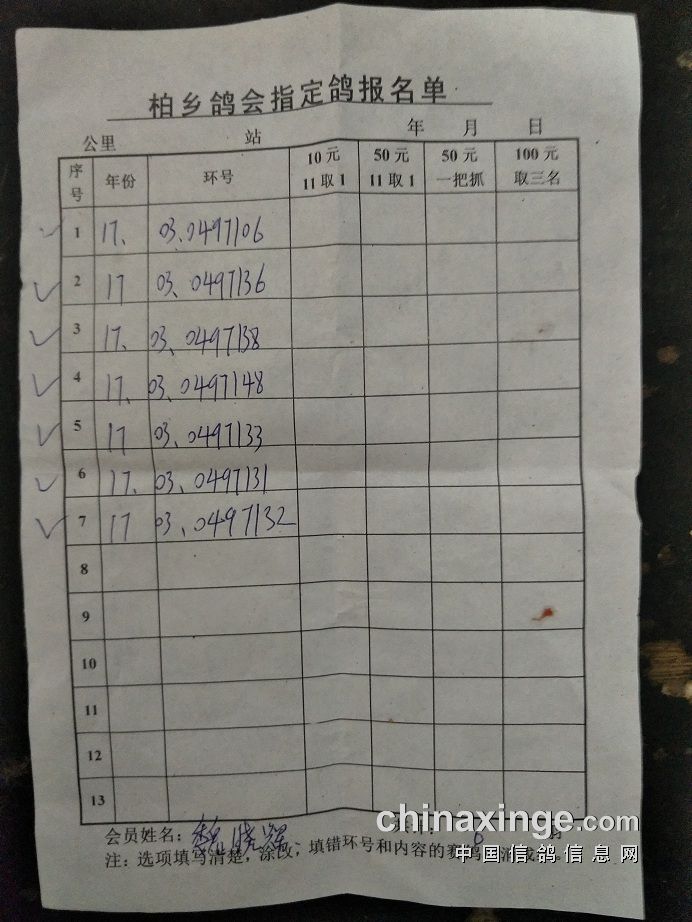 柏乡鸽会指定鸽报名单
公里 站 年 月 日
序号 年份 环号 10元 11取1 50元 11取1 50元 一把抓 100元 取三名
1 17. 03.0497106
2 17 03、0497136
3 17、 03、0497138
4 17、 03、0497148
5 17 03、0497133
6 17、 03、0497131
7 17 03、0497132
8
9
10
11
12
13
会员姓名：魏晓军
注：选项填写清楚，涂改，填错环号和内容的赛鸽
chinaxinge.com
中国信鸽信息网